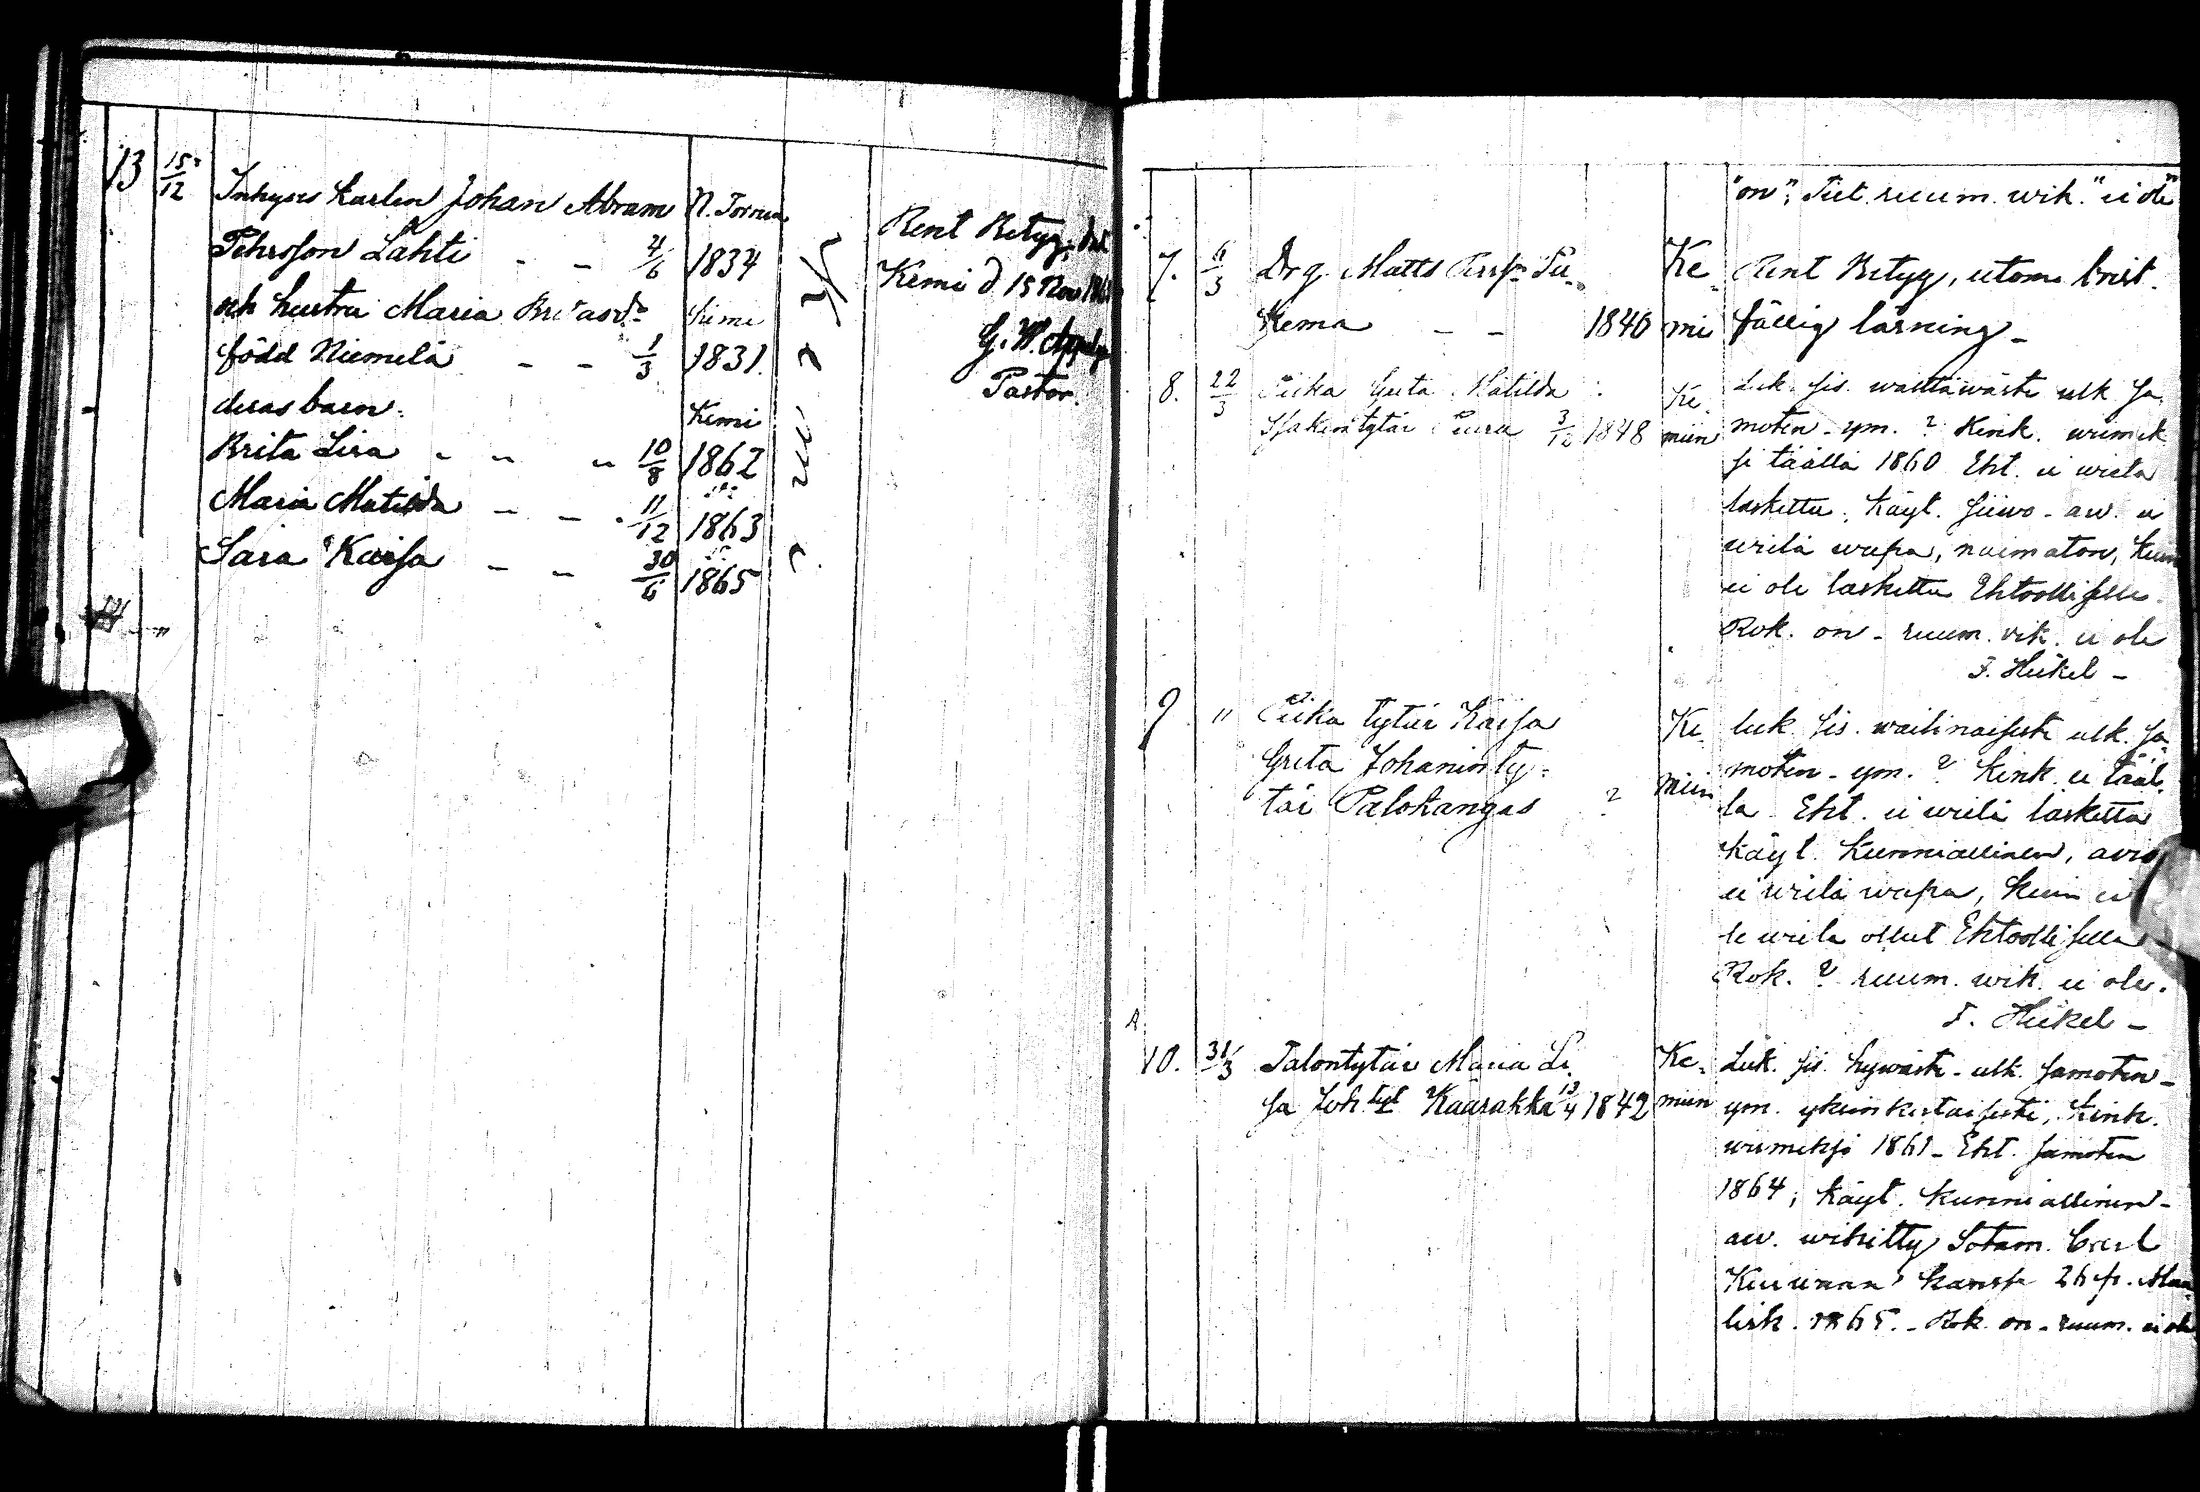 13 15/12 Inhyses karlen Johan Abram N. Torneå
Pehrsson Lahti - - 4/6 1834
och hustru Maria Kemi
född Niemelä - - 1/3 1831.
deras barn: Kemi
Brita Lisa - - - 10/8 1862
Maria Matilda - - 11/12 1863
Sara Kaisa - - 30/6 1865
Rent Betyg, dat
Kemi d 15 Nov
G. W. 
Pastor.
"on", Tiet. ruum. wik. "ei ole"
7. 6/3 Drg Matts Ke-
- - 1840 mi
Rent Betyg, utom brist-
fällig läsning -
8. 22/3 Piika Greta Matilda Ke-
3/12 1848 miin
Luk. sis. ulk. sa-
moten - ym. ? Kink. wiimek-
si täällä 1860 Eht. ei wielä
laskettu. Käyt. siiwo - aw. ei
wielä wapa, naimaton, kun
ei ole laskettu Ehtoolliselle.
Rok. on - ruum. vik. ei ole
F. Heikel -
9 " Piika tytär Kaisa Ke-
Greta Johaninty-
tär Palokangas ? miin
luk. sis. ulk. sa-
moten - ym. ? Kink. ei tääl-
lä Eht. ei wielä laskettu
Käyt. Kunniallinen, avio
ei wielä wapa, kuin ei
le wielä ollut Ehtoollisella
Rok. ? ruum. wik. ei ole.
F. Heikel -
10. 31/3 Talontytär Maria Li- Ke-
sa Joh. tyt Kaarakka 13/4 1842 miin
Luk. sis. hywästi - ulk. samoten -
ym. yksinkertaisesti, Kink.
wiimeksi 1861 - Eht. samoten
1864; Käyt. Kunniallinen -
aw. wihitty Sotam. Carl
kanssa 26 p. Maa-
lisk. 1865. - Rok. on - ruum. ei ole